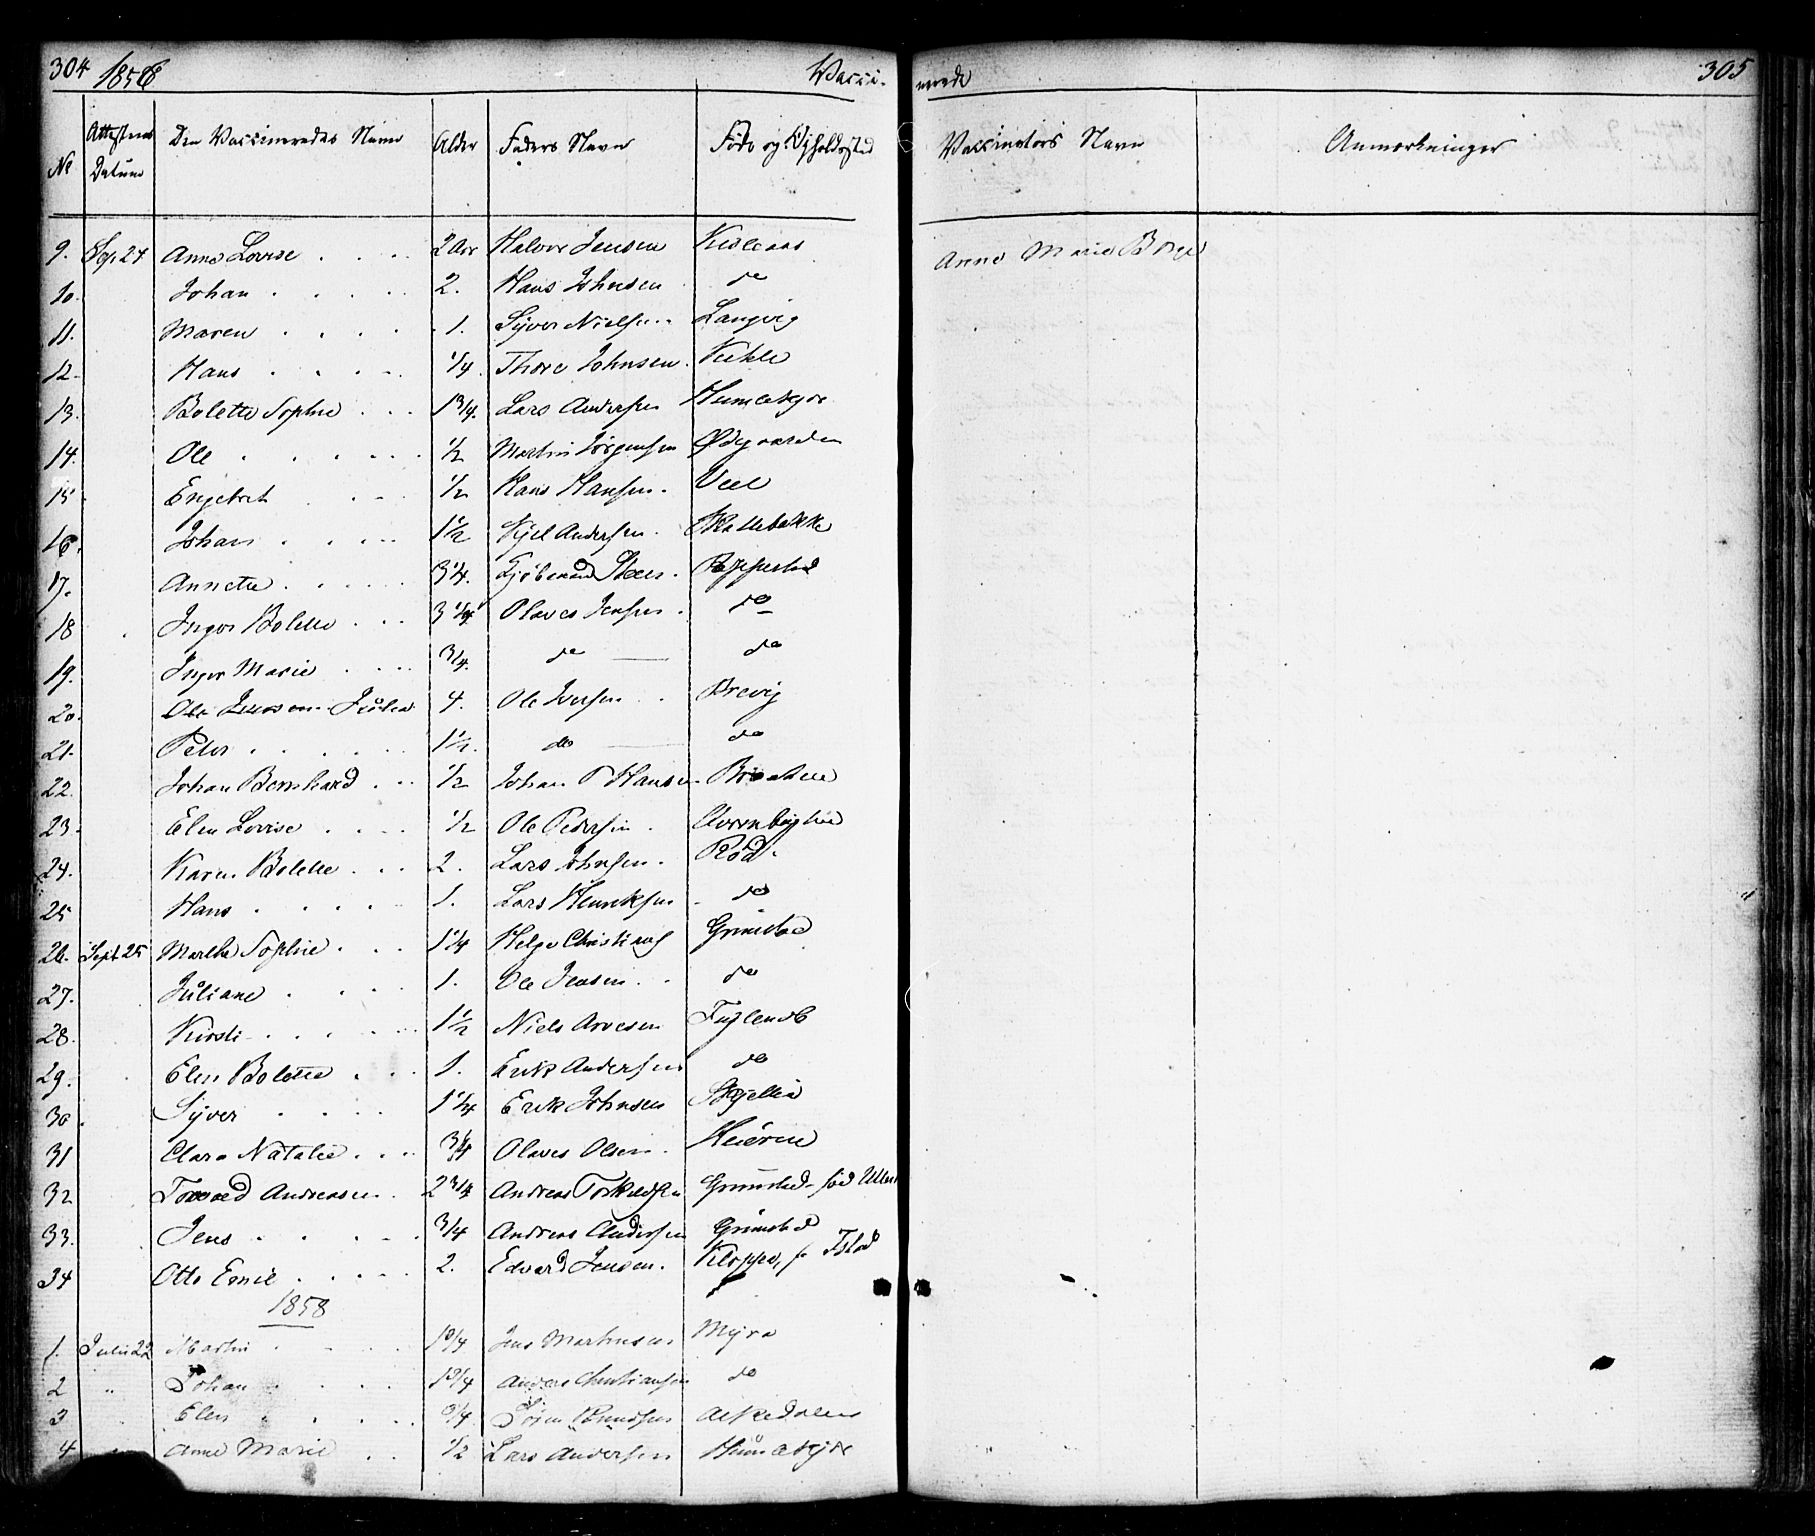 304 1856 Vacci- nerede 305
No Attestens Datum Den Vaccineredes Navn Alder Faders Navn Føde og Opholdssted Vaccinators Navn Anmærkninger
9. Sep 24 Anne Lovise 2 Aar Halvor Jensen Anne Marie
10. Johan 2. Hans Johnsen do
11. Maren 1. Syver Nielsen Langvig
12. Hans 1/4 Thore Johnsen
13. Bolette Sophie 1 3/4. Lars Andersen
14. Ole 1/2 Martin Jørgensen Ødegaarden
15 Engebret 1/2 Hans Hansen.
16. Johan 1 1/2 Kjel Andersen. Skallebakke
17. Annette
18 Inger Bolette 3 1/4 Olaves Jensen. do
19. Inger Marie 3/4. do do
20. Ole 4. Ole Iversen Brevig
21. Peter 1 1/2. do do
22. Johan Bernhard 1/2 Johan P Hansen
23. Elen Lovise 1/2 Ole Pedersen
24. Karen Bolette 2. Lars Johnsen. Rød.
25 Hans 1. Lars Henriksen do
26. Sept 25 Marthe Sophie 1 1/4 Helge Christians Grimstad
27. Juliane 1. Ole Jensen do
28. Kirsti 1 1/2 Niels Arvesen
29. Elen Bolette 1. Erik Andersen do
30. Syver 1 1/4 Erik Johnsen
31 Clara Natalie Olaves Olsen
32 Andreasen 2 3/4 Andreas Torkildsen Grimstad - fød
33. Jens 3/4 Andreas Andersen Grimstad
34 Otto Emil 2. Edvard Jensen.
1858
1. Julii 22 Martin 1 3/4 Jens Martinusen Myra
2 " Johan 1 3/4 Anders Christiansen do
3 " Elen 3/4 Søren Knudsen
4 " Anne Marie 1/2 Lars Andersen